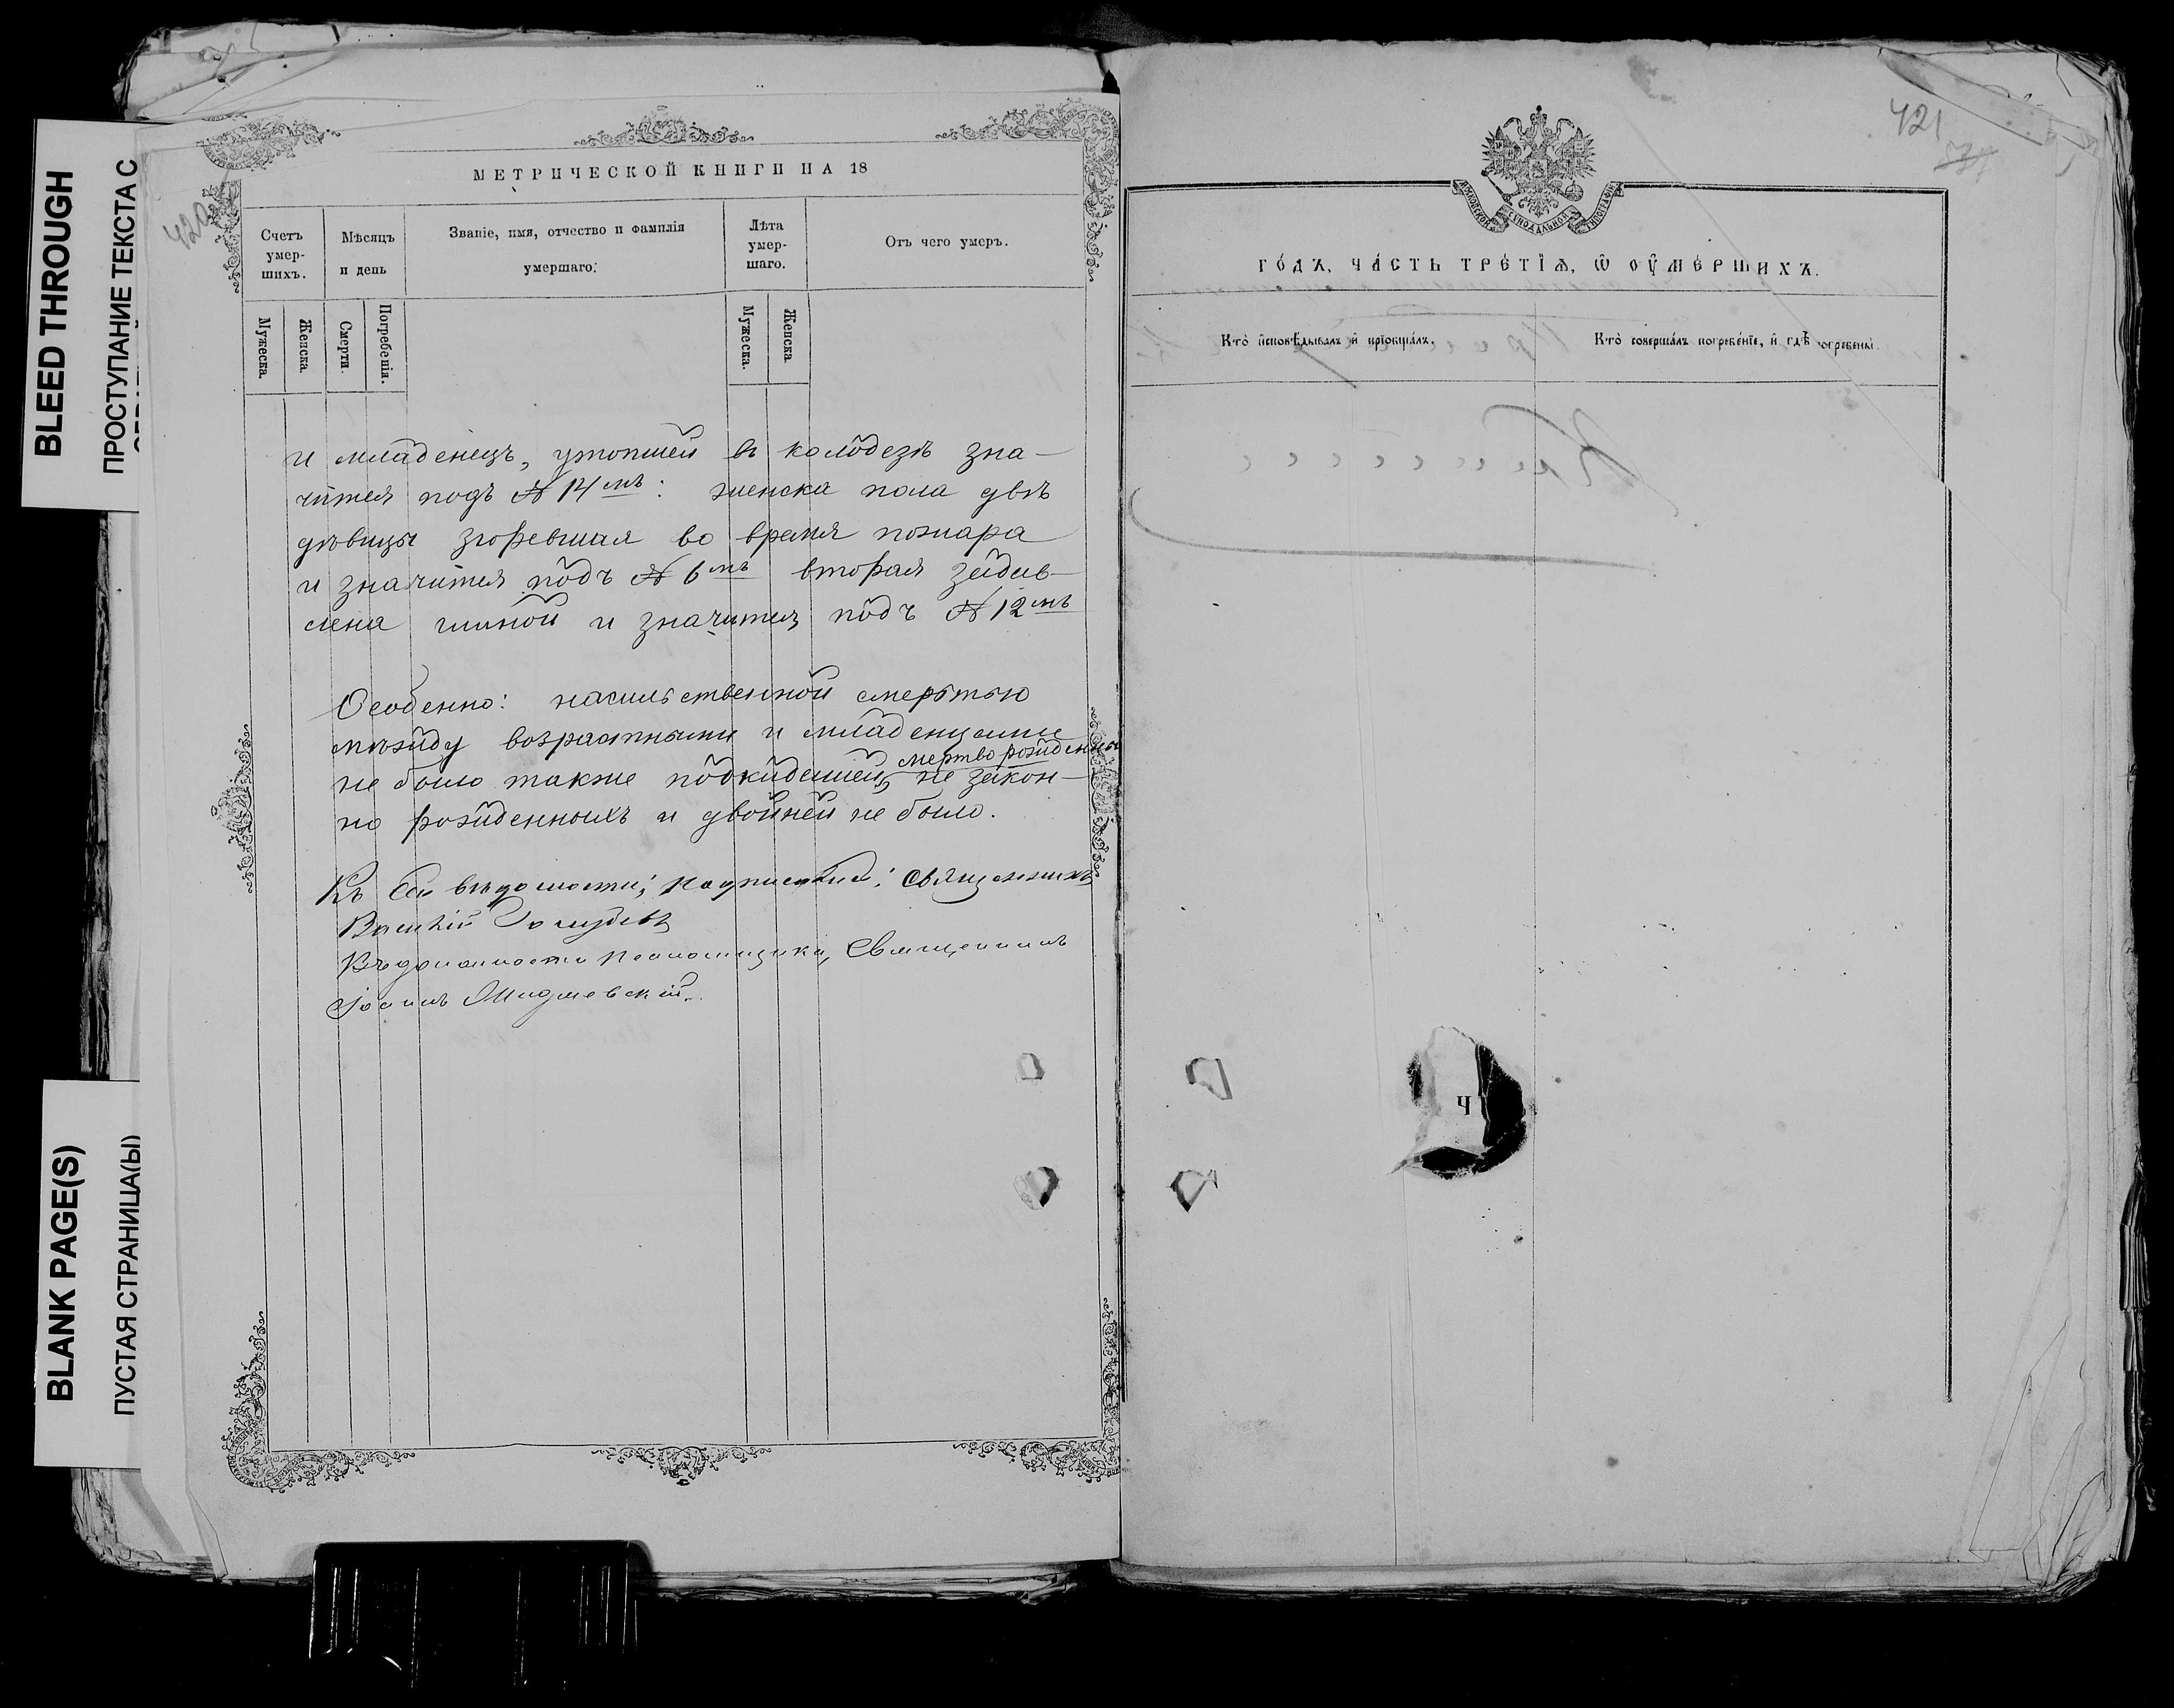 BLEED THROUGH
ПРОСТУПАНИЕ ТЕКСТА С
BLANK PAGE(S)
ПУСТАЯ СТРАНИЦА(Ы)
420
МЕТРИЧЕСКОЙ КНИГИ НА 18
Счетъ умер-шихъ.
Мѣсяцъ и день
Званіе, имя, отчество и фамилія умершаго.
Лѣта умер-шаго.
Отъ чего умеръ.
Мужеска.
Женска.
Смерти.
Погребенія.
Мужеска.
Женска.
и младенецъ, утопшей въ колодезѣ зна-
чится подъ № 14мъ: женска пола двѣ
дѣвицы згоревшая во время пожара
и значится подъ № 6мъ вторая задав-
лена глиной и значится подъ № 12мъ
Особенно: насильственной смертью
между возрастными и младенцами
мертворожденны
не было также подкидышей, не закон-
но рожденныхъ и двойней не было.
Къ сей вѣдомости, подписался: Священникъ
Василій Голубевъ
Въ должности помощника, Священникъ
Іоаннъ
421
ГО́ДЪ, ЧА́СТЬ ТРЕ́ТІѦ, Ѡ ОУМЕ́РШИХЪ.
Кто̀ и҆сповѣ́дывалъ и҆ прїобща́лъ.
Кто̀ соверша́лъ погребе́нїе, и҆ гдѣ̀ погребены̀.